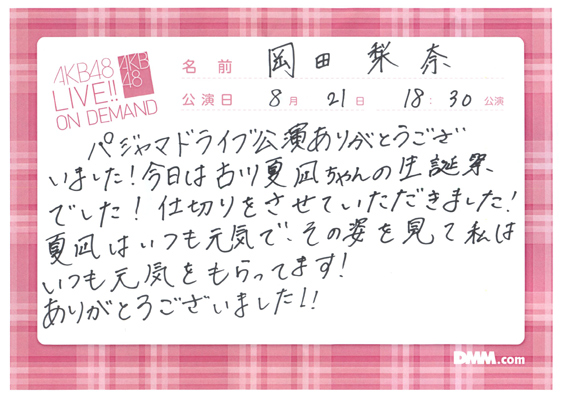 AKB48
LIVE!!
ON DEMAND
AKB
48
名前 岡田梨奈
公演日 8月21日 18:30公演
パジャマドライブ公演ありがとうござ
いました!今日は古川夏凪ちゃんの生誕祭
でした!仕切りをさせていただきました!
夏凪はいつも元気で、その姿を見て私は
いつも元気をもらってます!
ありがとうございました!!
DMM.com